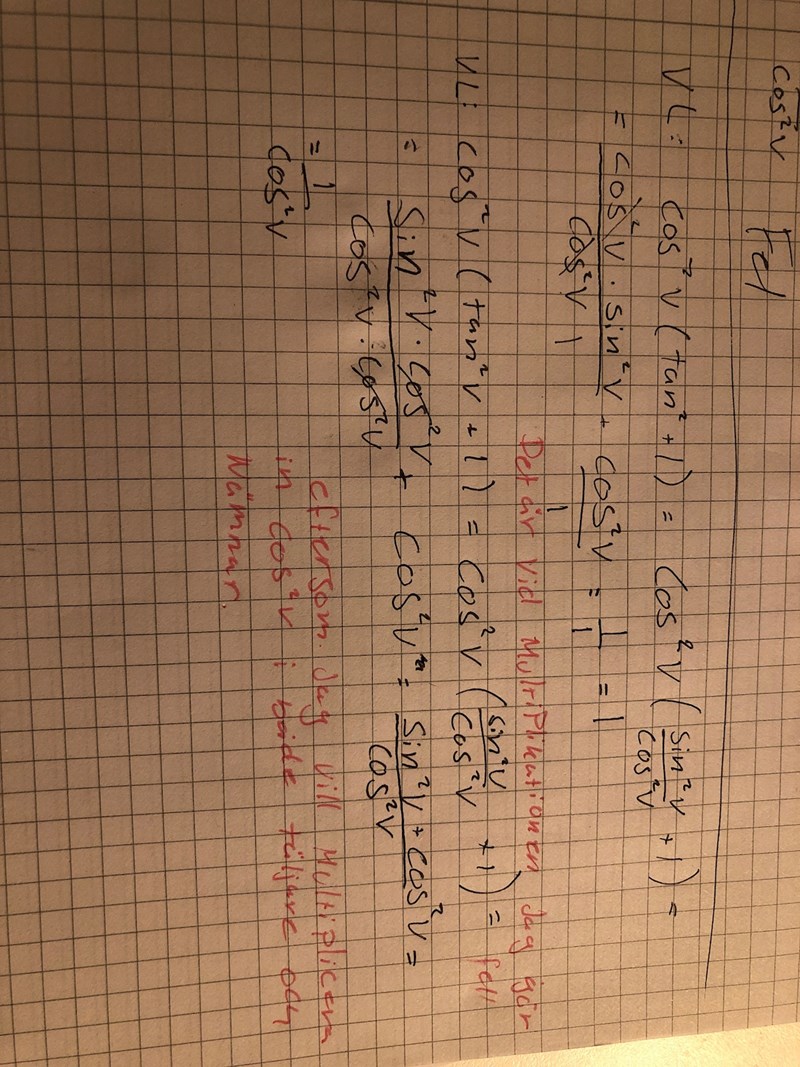 cos²v Fel
VL: cos²v (tan² + 1) = cos²v (sin²v/cos²v + 1) =
= cos²v · sin²v / cos²v · 1 + cos²v / 1 = 1/1 = 1
Det är vid Multiplikationen Jag gör fell
VL: cos²v (tan²v + 1) = cos²v (sin²v/cos²v + 1) =
= sin²v · cos²v / cos²v · cos²v + cos²v = sin²v + cos²v / cos²v =
= 1/cos²v
eftersom Jag vill Multiplicera
in cos²v i både täljare och
Nämnar.